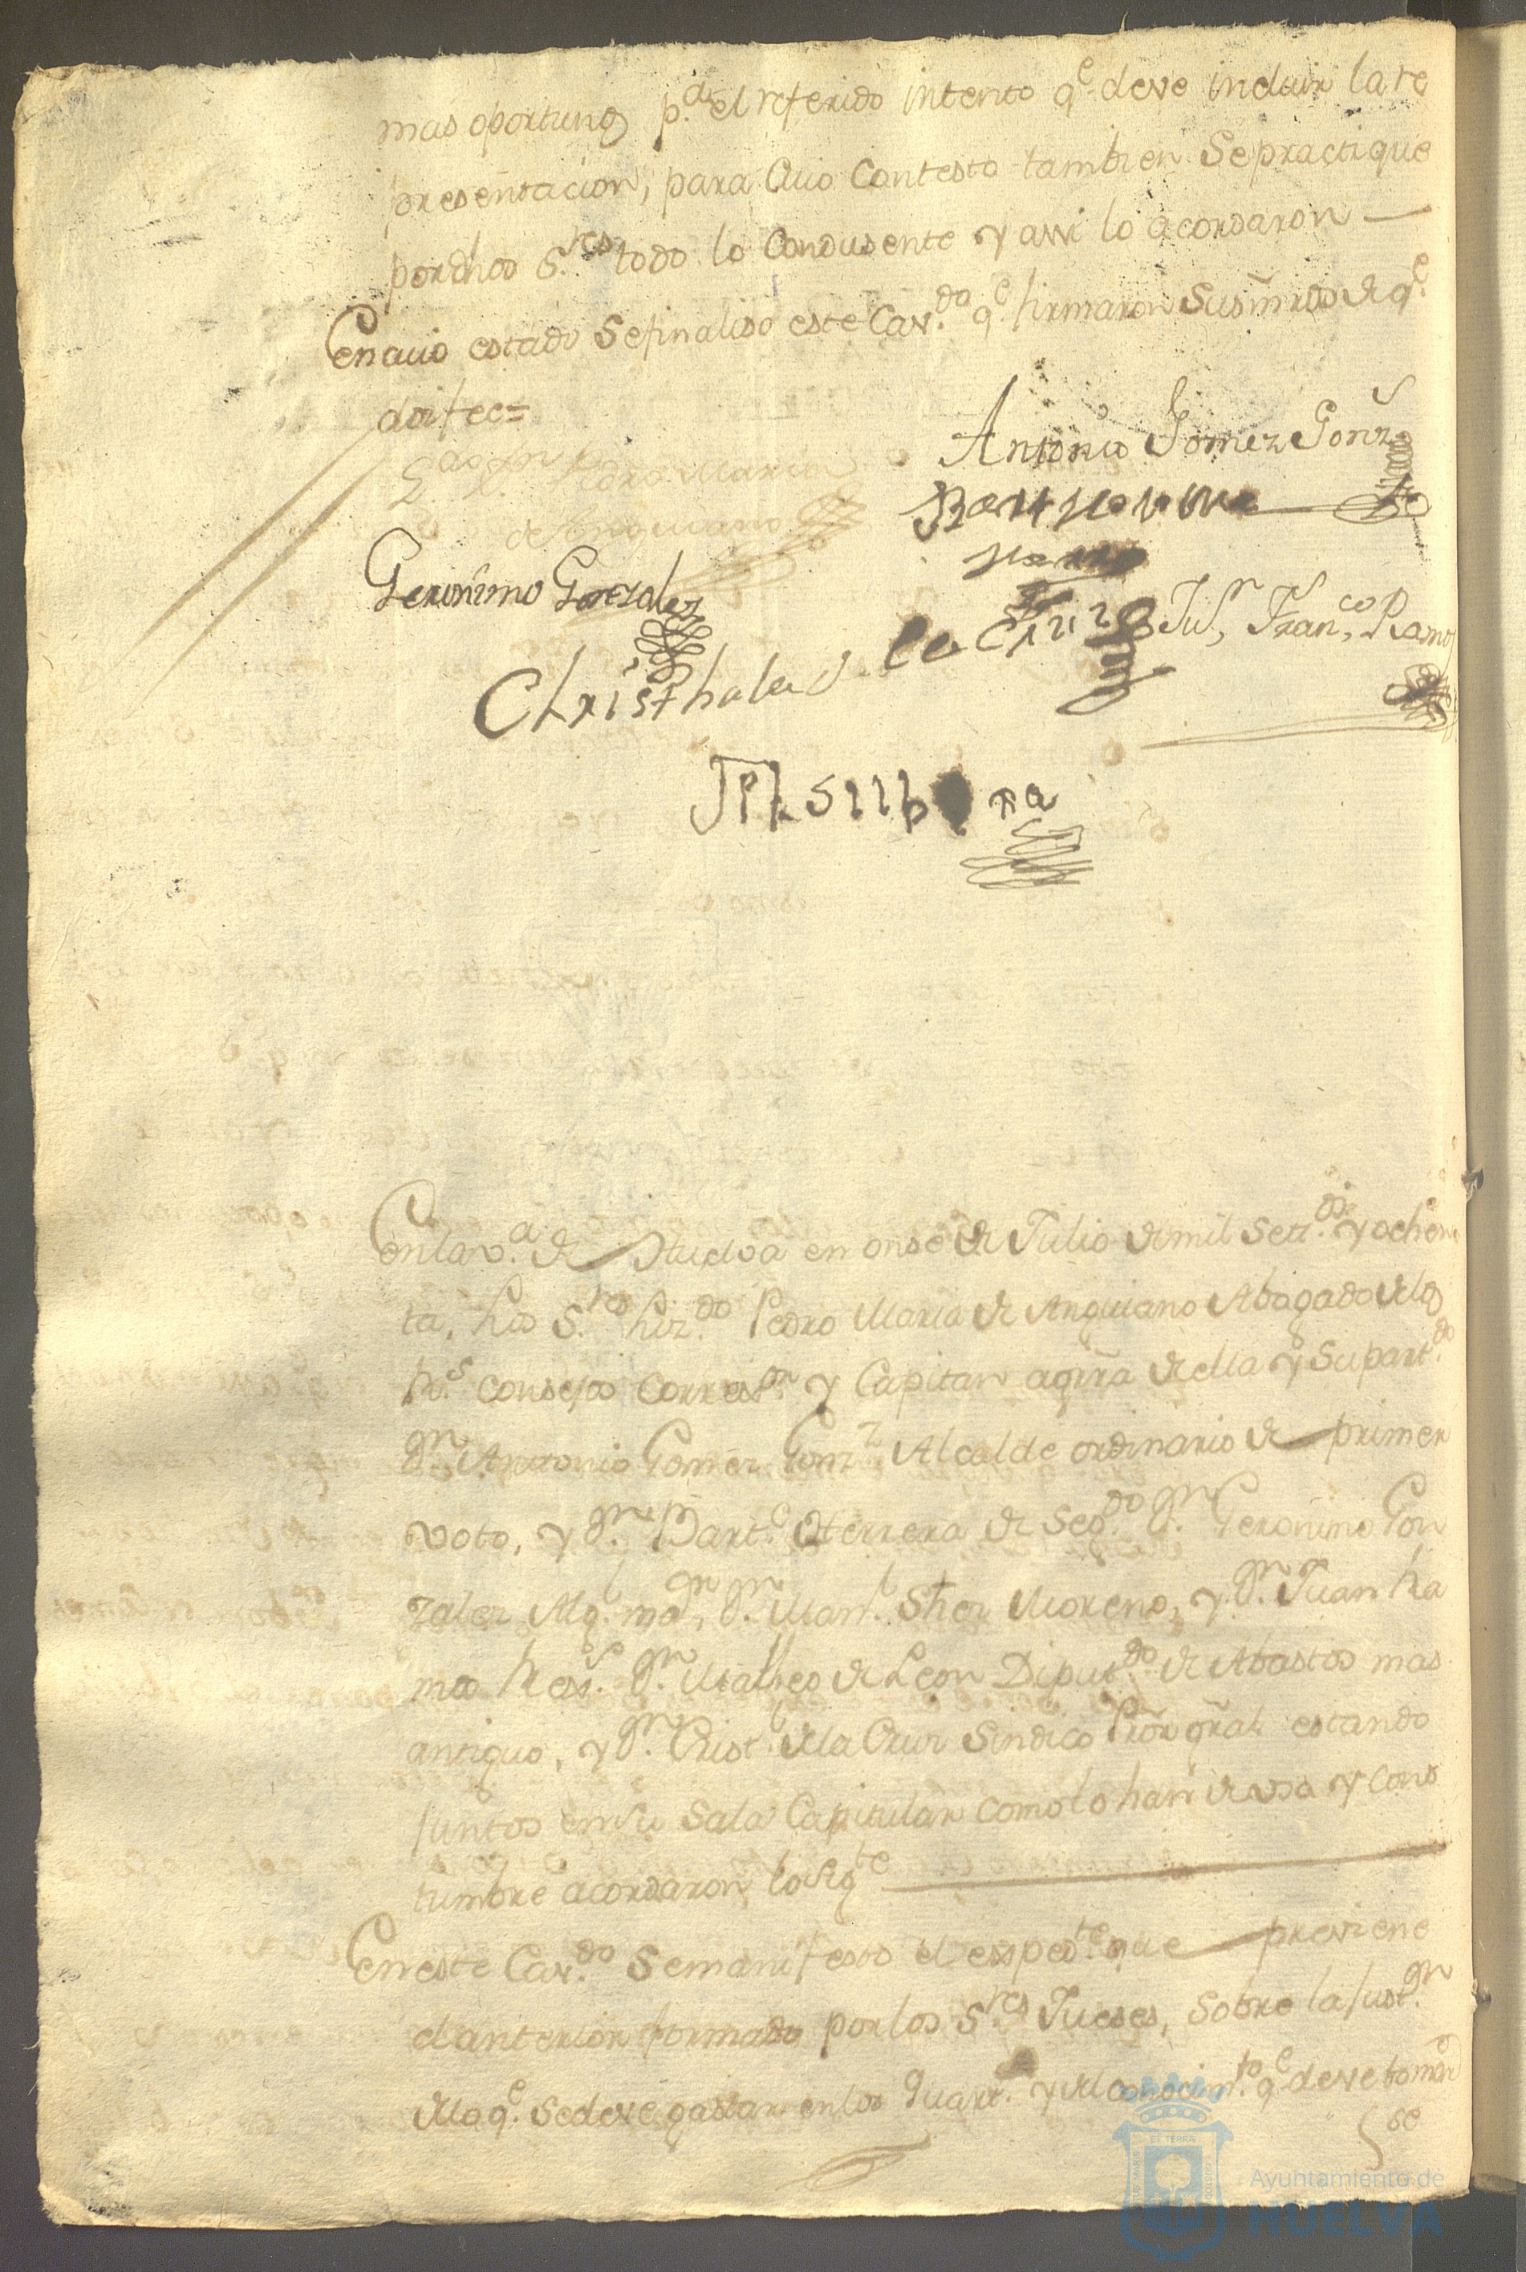 mas oportuno, p.ª el referido intento q.e deve incluir la re
presentacion, para Cuio Contesto tambien Se practique
por dhos S.res todo lo Condusente y assi lo acordaron —
En cuio estado Se finaliso este Cav.do q.e firmaron Sus mrds de q.e
doi fee =
L.do D.n Pedro Maria
de Anguiano
Antonio Gomez Gonz.
Geronimo Gonzalez
Christhobal de la Cruz
Ju.n Fran.co Ramos
En la v.a de Huelva en onse de Julio de mil Set.os y ochen
ta, los S.res Liz.do Pedro Maria de Anguiano Abogado de los
R.s Consejos Corres.or y Capitan a grra de ella y Su part.do
D.n Antonio Gomez Gonz.z Alcalde ordinario de primer
voto, y D.n Bart.e Herrera de Seg.do D.n Geronimo Gon
zalez Alg.l ma.or, D.n Man.l Shez Moreno, y D.n Juan Ra
mos Res.s D.n Matheo de Leon Diput.do de Abastos mas
antiguo, y D.n Crist.l de la Cruz Sindico Pror gral estando
Juntos en Su Sala Capitular como lo han de uso y Cos
tumbre acordaron lo Sig.te —
En este Cav.do Se manifesto el esped.te que previene
el anterior formado por los S.res Jueses, Sobre la Just.on
de lo q.e Se deve gastar en los Quart.s y del conocim.to q.e deve tomar
se
Ayuntamiento de
HUELVA